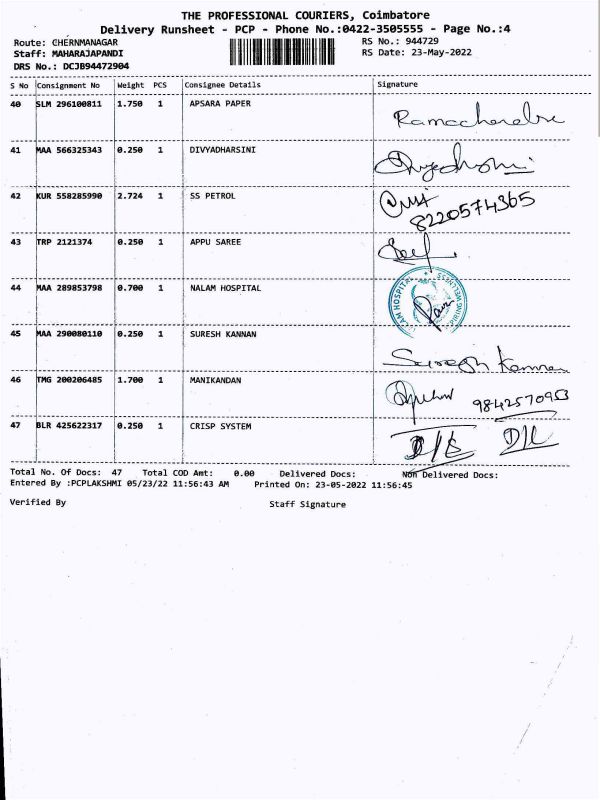 THE PROFESSIONAL COURIERS, Coimbatore
Delivery Runsheet - PCP - Phone No.:0422-3505555 - Page No.:4
Route: CHERNMANAGAR RS No.: 944729
Staff: MAHARAJAPANDI RS Date: 23-May-2022
DRS No.: DCJB94472904
S No Consignment No Weight PCS Consignee Details Signature
40 SLM 296100811 1.750 1 APSARA PAPER
Ramachandra
41 MAA 566325343 0.250 1 DIVYADHARSINI
42 KUR 558285990 2.724 1 SS PETROL
8220574365
43 TRP 2121374 0.250 1 APPU SAREE
44 MAA 289853798 0.700 1 NALAM HOSPITAL
45 MAA 290080110 0.250 1 SURESH KANNAN
Suresh Kannan
46 TMG 200206485 1.700 1 MANIKANDAN
9842570953
47 BLR 425622317 0.250 1 CRISP SYSTEM
D/L D/L
Total No. Of Docs: 47 Total COD Amt: 0.00 Delivered Docs: Non Delivered Docs:
Entered By :PCPLAKSHMI 05/23/22 11:56:43 AM Printed On: 23-05-2022 11:56:45
Verified By Staff Signature